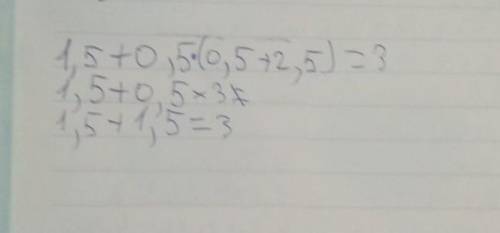 1,5+0,5·(0,5+2,5)=3
1,5+0,5×3
1,5+1,5=3